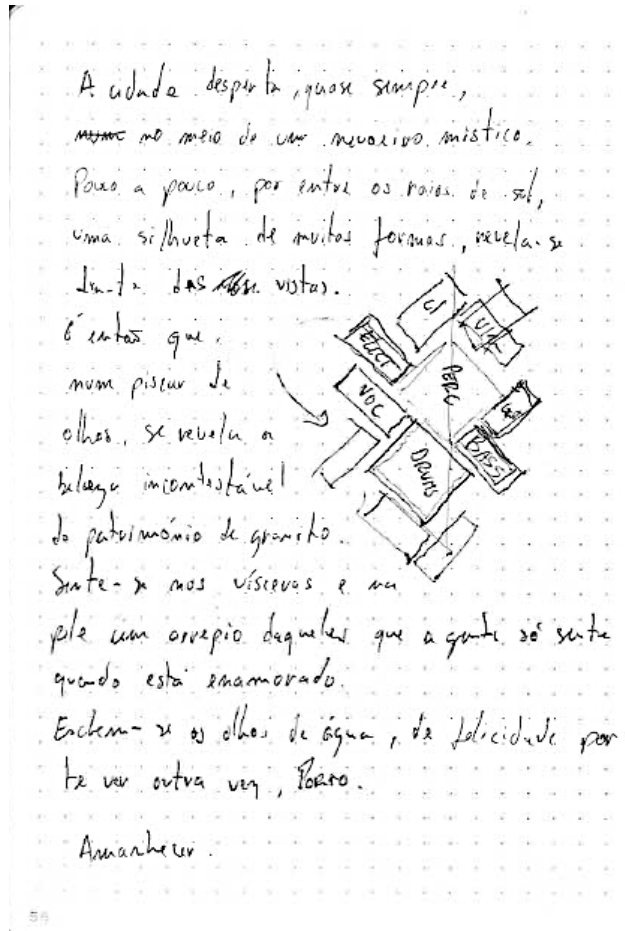 A cidade desperta, quase sempre,
no meio de um nevoeiro místico.
Pouco a pouco, por entre os raios de sol,
uma silhueta de muitas formas, revela-se
diante das vistas.
É então que,
num piscar de
olhos, se revela a
beleza incontestável
do património de granito.
Sente-se nas vísceras e na
pele um arrepio daqueles que a gente só sente
quando está enamorado.
Enchem-se os olhos de água, de felicidade por
te ver outra vez, PORTO.
Amanhecer.
ELECT
VOC
PERC
DRUMS
BASS
54